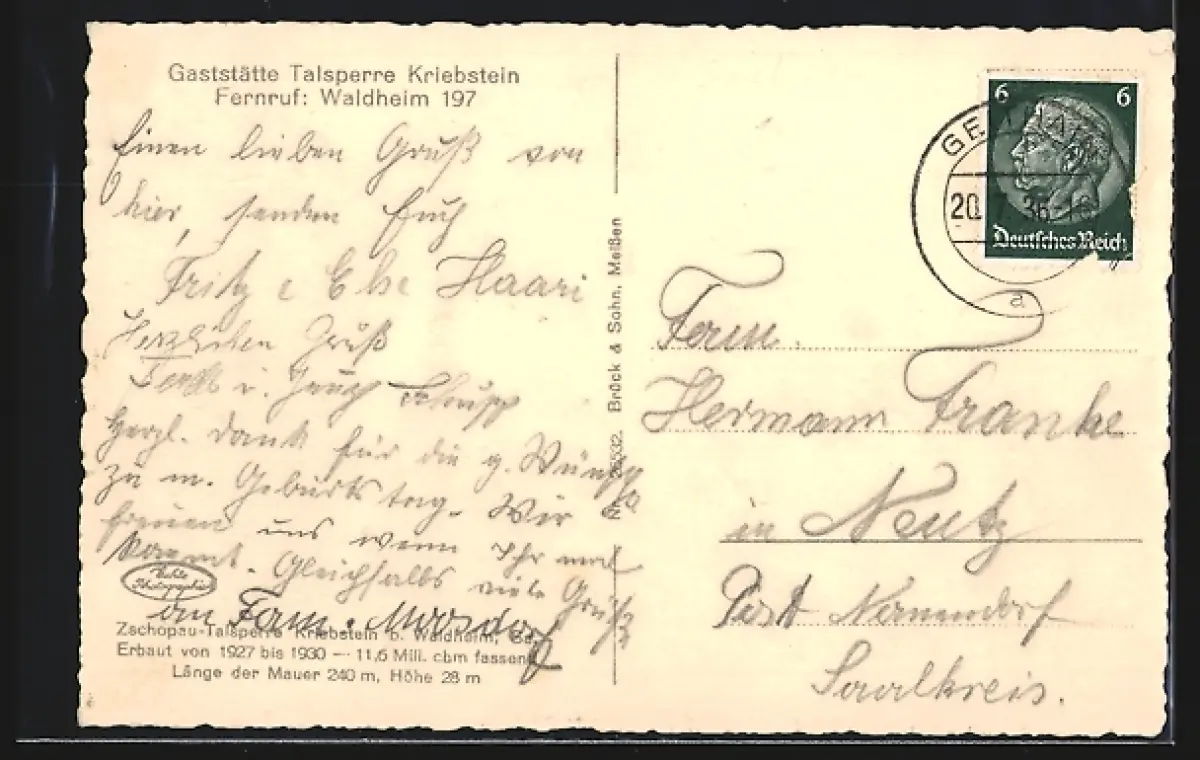 Gaststätte Talsperre Kriebstein
Fernruf: Waldheim 197
Einen lieben Gruß von
hier, senden Euch
Fritz e Else Haari
Herzlichen Gruß
i.
Herzl. Dank für die g. Wünsche
zu m. Geburtstag. Wir
freuen uns wenn Ihr mal
kommt. Gleichfalls viele Grüße
an Fam. Moosdorf
Echte
Photographie
Zschopau-Talsperre Kriebstein b. Waldheim, Sa.
Erbaut von 1927 bis 1930 — 11,6 Mill. cbm fassend
Länge der Mauer 240 m, Höhe 28 m
Brück & Sohn, Meißen
6 6
Deutsches Reich
20. 36-16
a
Fam.
Hermann Franke
in Neutz
Post Nauendorf
Saalkreis.